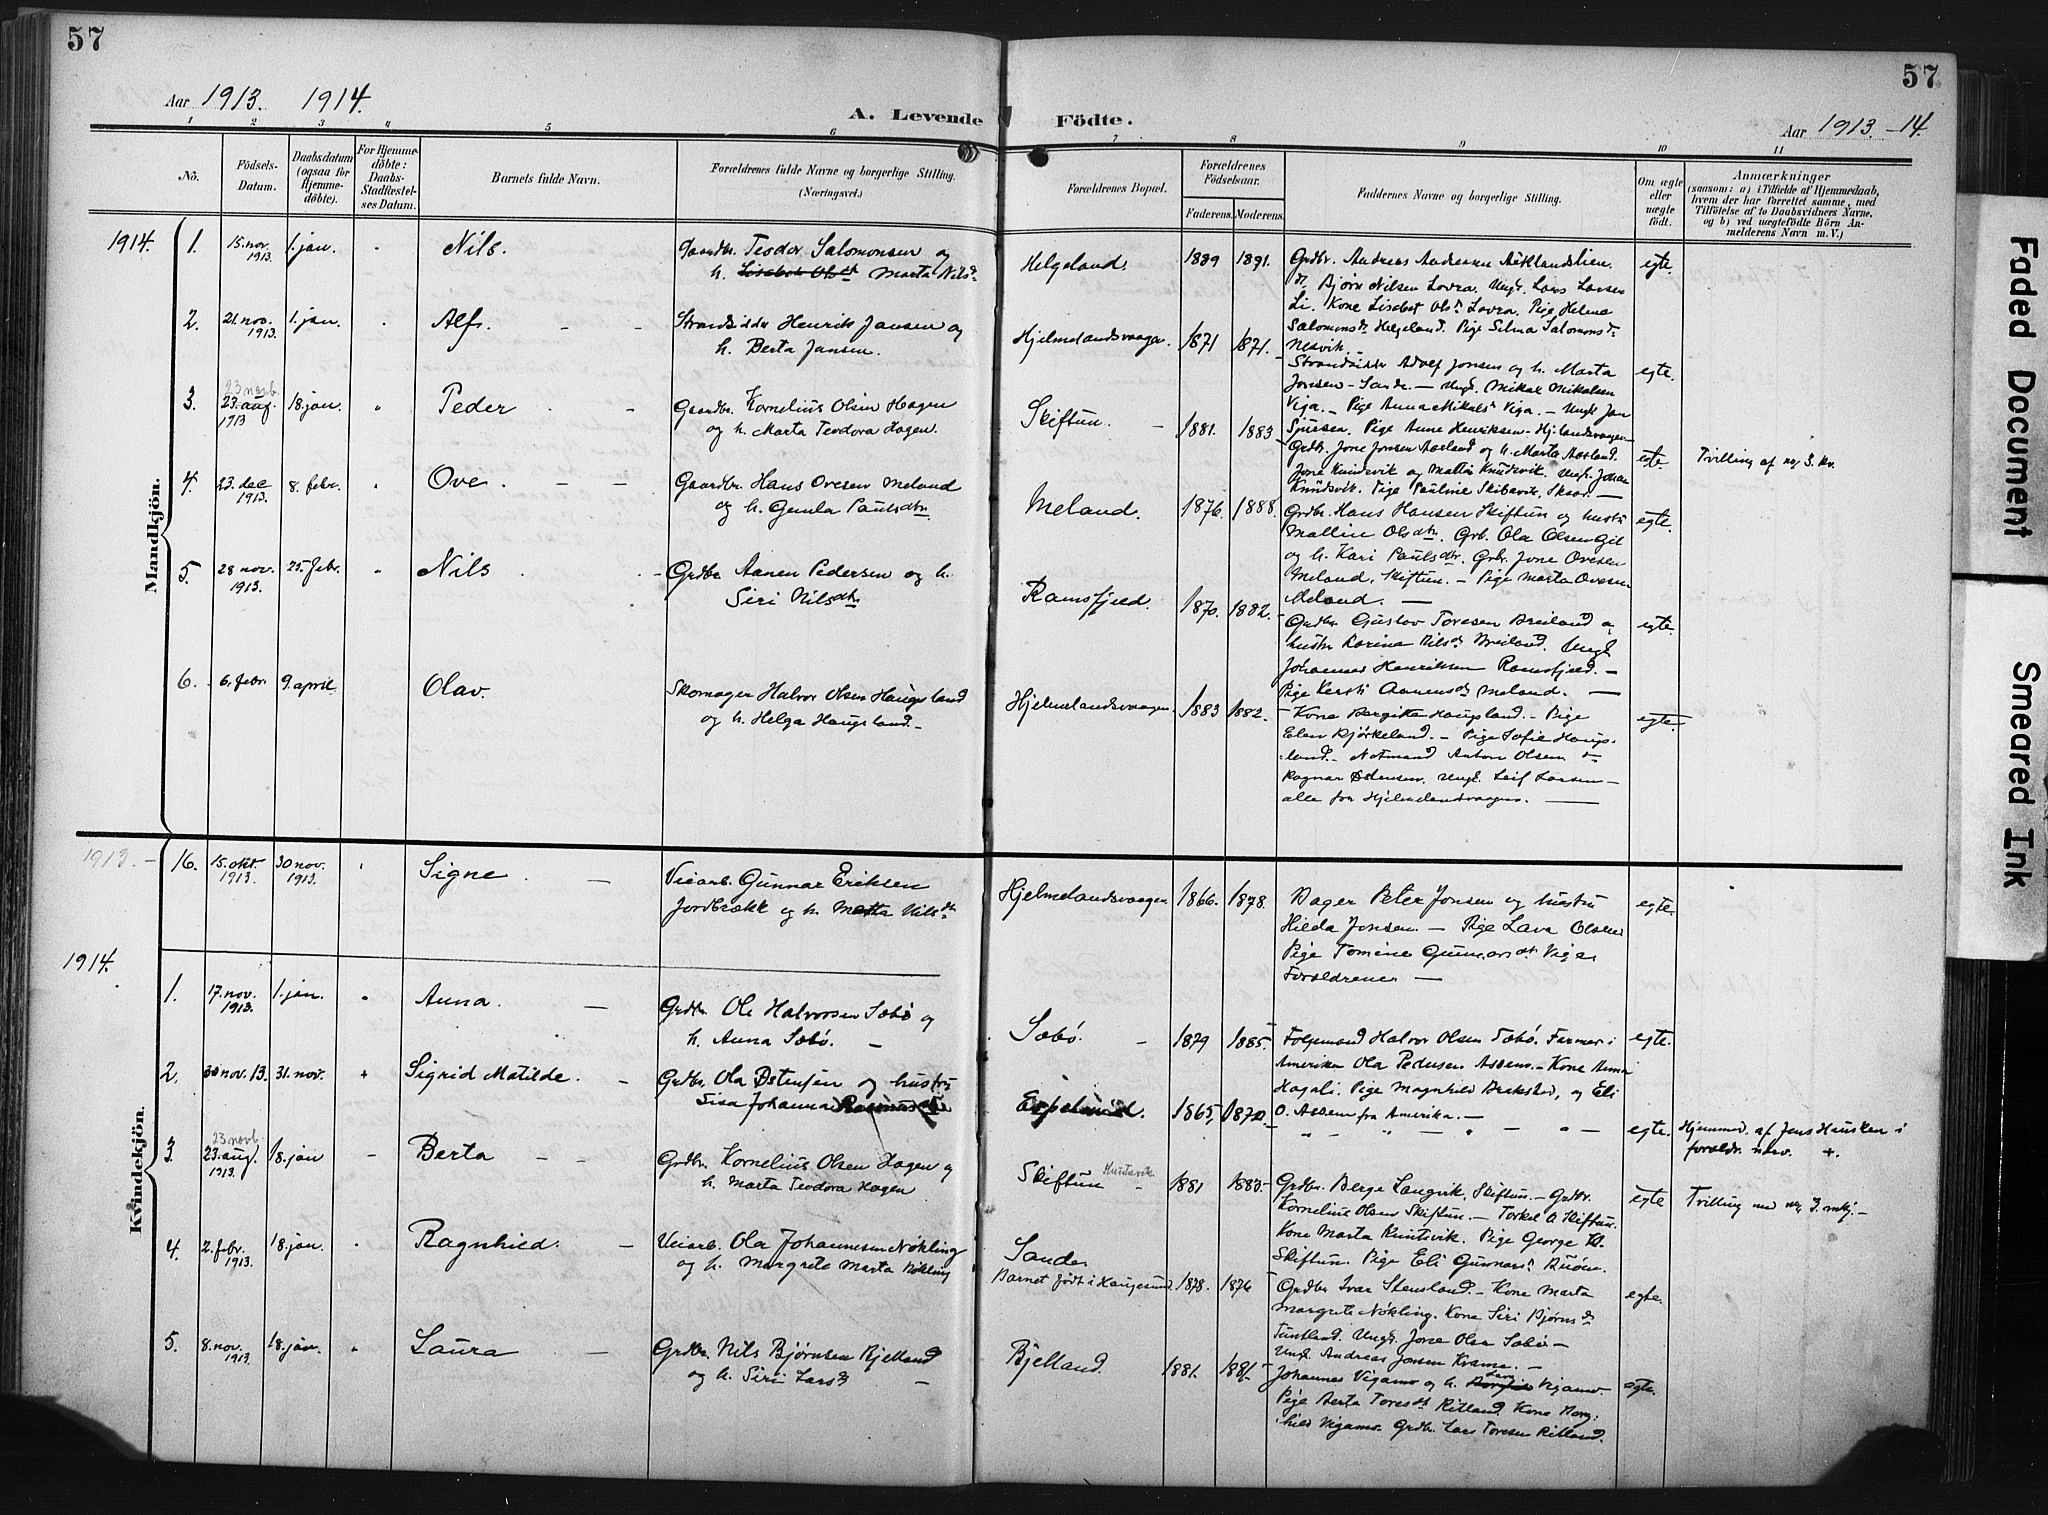 57
57
Aar 1913. 1914.
A. Levende Födte.
Aar 1913.-14.
1 2 3 4 5 6 7 8 9 10 11
No.
Födsels-Datum.
Daabsdatum (ogsaa for Hjemme-döbte).
For Hjemme-döbte: Daabs-Stadfæstel-ses Datum.
Barnets fulde Navn.
Forældrenes fulde Navne og borgerlige Stilling.
(Næringsvei.)
Forældrenes Bopæl.
Forældrenes Födselsaar.
Faderens. Moderens.
Faddernes Navne og borgerlige Stilling.
Om ægte eller uægte födt.
Anmærkninger
(saasom: a) i Tilfælde af Hjemmedaab,
hvem der har forrettet samme, med
Tilföielse af to Daabsvidners Navne,
og b) ved uægtefödte Börn An-
melderens Navn m. V.)
Mandkjön.
1914. 1. 15. nov. 1913. 1. jan. Nils. Gaardbr. Teodor Salomonsen og
h. Marta Nilsd.
Helgeland. 1889 1891.
Grdbr. Andreas Andreasen
Bjørn Nilsen Lovra. Ungk. Lars Larsen
Li. Kone Lisebet Olsd. Lovra. Pige Helene
Salomonsd. Helgeland. Pige Selma Salomonsd.
Nesvik.
egte.
2. 21. nov. 1913. 1. jan. Alf. Strandsidder Henrik Jansen og
h. Berta Jansen.
Hjelmelandsvaagen. 1871 1871.
Strandsidder Adolf Jonsen og h. Marta
Jonsen - Sande. - Ungk. Mikal Mikalsen
Viga. - Pige Anna Mikalsd. Viga. - Ungk. Jan
Pige Anne Henriksen - Hjelmelandsvaagen
egte.
3. 23 novb. 23. aug. 1913 18. jan. Peder Gaardbr. Kornelius Olsen Hagen
og h. Marta Teodora Hagen.
Skiftun. 1881. 1883
Grdbr. Jone Jonsen Aasland og h. Marta Aasland.
Jone Kundsvik og Marta Knudsvik. Ungk. Johan
Knudsvik. Pige Pauline
egte. Tvilling af nr. 3. kv.
4. 23. dec 1913. 8. febr. Ove. Gaardbr. Hans Ovesen Meland
og h. Gunla Paulsdtr.
Meland. 1876. 1888.
Grdbr. Hans Hansen Skiftun og hustru
Mallin Olsdtr. Grb. Ola Olsen Gil
og h. Kari Paulsdtr. Grbr. Jone Ovesen
Meland, Skiftun. - Pige Marta Ovesen
Meland.
egte.
5. 28 nov. 1913. 25. febr. Nils Grdbr. Aanen Pedersen og h.
Siri Nilsdtr.
Ramsfjeld. 1870. 1882.
Grdbr. Gustav Toresen Breiland og
hustr. Karina Nilsd. Breiland. Ungk.
Johannes Henriksen Ramsfjeld. -
Pige Kersti Aanensd. Meland.
egte.
6. 6. febr. 9. april. Olav. Skomager Halvor Olsen Haugsland
og h. Helga Haugsland.
Hjelmelandsvaagen. 1883 1882.
Kone Bergitha Haugsland. - Pige
Elen Bjørkeland. - Pige Sofie Haugs-
land. - Notmand Anton Olsen
Ragnar Østensen. Ungk. Leif Larsen -
alle fra Hjelmelandsvaagen.
egte.
Kvindekjön.
1913. - 16. 15. okt. 1913. 30 nov. 1913. Signe Veiarb. Gunnar Eriksen
Jordbrækk og h. Marta Nilsdtr.
Hjelmelandsvaagen. 1866. 1878.
Bager Peter Jonsen og hustru
Hilda Jonsen. - Pige Lava Olsen
Pige Tomine Gunnarsdt. Viga
Forældrene. -
egte.
1914. 1. 17. nov. 1913. 1. jan. Anna Grdbr. Ole Halvorsen Sæbø og
h. Anna Sæbø. -
Sæbø. 1879 1885.
Folgemand Halvor Olsen Sæbø. Farmer i
Amerika Ola Pedersen Assem. - Kone Anna
Hagali. Pige Magnhild og Eli
O. Assem fra Amerika. -
egte.
2. 30 nov. 13. 31. nov. Sigrid Matilde. Grdbr. Ola Østensen og hustru
Sisa Johanna
1865. 1870.
egte. Hjemmed. af Jens Hausken i
foraldr. nærv. +.
3. 23 novb. 23. aug. 1913. 18. jan Berta Grdbr. Kornelius Olsen Hagen og
h. Marta Teodora Hagen
Skiftun 1881 1883.
Grdbr. Berge Langvik, Skiftun. - Grdbr.
Kornelius Olsen Skiftun. - Torkel O. Skiftun.
Kone Marta Kuntsvik. Pige George
Skiftun. Pige Eli Gunnarsd. Buøen.
egte Tvilling med nr. 3. mkj. -
4. 2. febr. 1913. 18. jan. Ragnhild. Veiarb. Ola Johannesen Nøkling
og h. Margrete Marta Nøkling
Sande.
Barnet født i Haugesund. 1878. 1876
Grdbr Ivar Stensland. - Kone Marta
Margrete Nøkling. Kone Siri Bjørnsd.
Tuntland. Ungk. Jone Olsen Sæbø -
Ungk. Andreas Jonsen Kvame. -
egte.
5. 8. nov. 1913. 18. jan. Laura Grdbr. Nils Bjørnsen Bjelland
og h. Siri Larsd.
Bjelland. 1881. 1881.
Johannes Vigamo og h. Vigamo.
Pige Berta Toresdt. Ritland. Kone Borg-
hild Vigamo. Grdbr. Lars Toresen Ritland.
egte.
Faded Document
Smeared Ink